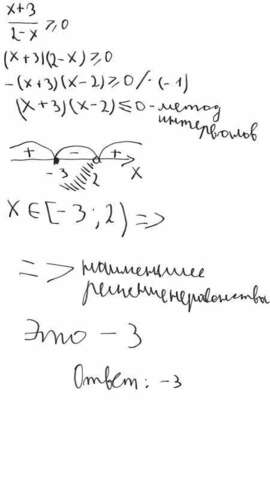 x+3
2-x ≥ 0
(x+3)(2-x) ≥ 0
-(x+3)(x-2) ≥ 0 / · (-1)
(x+3)(x-2) ≤ 0 - метод
интервалов
+ - +
-3 2 x
x ∈ [-3; 2) =>
=> наименьшее
решение неравенства
Это -3
Ответ: -3